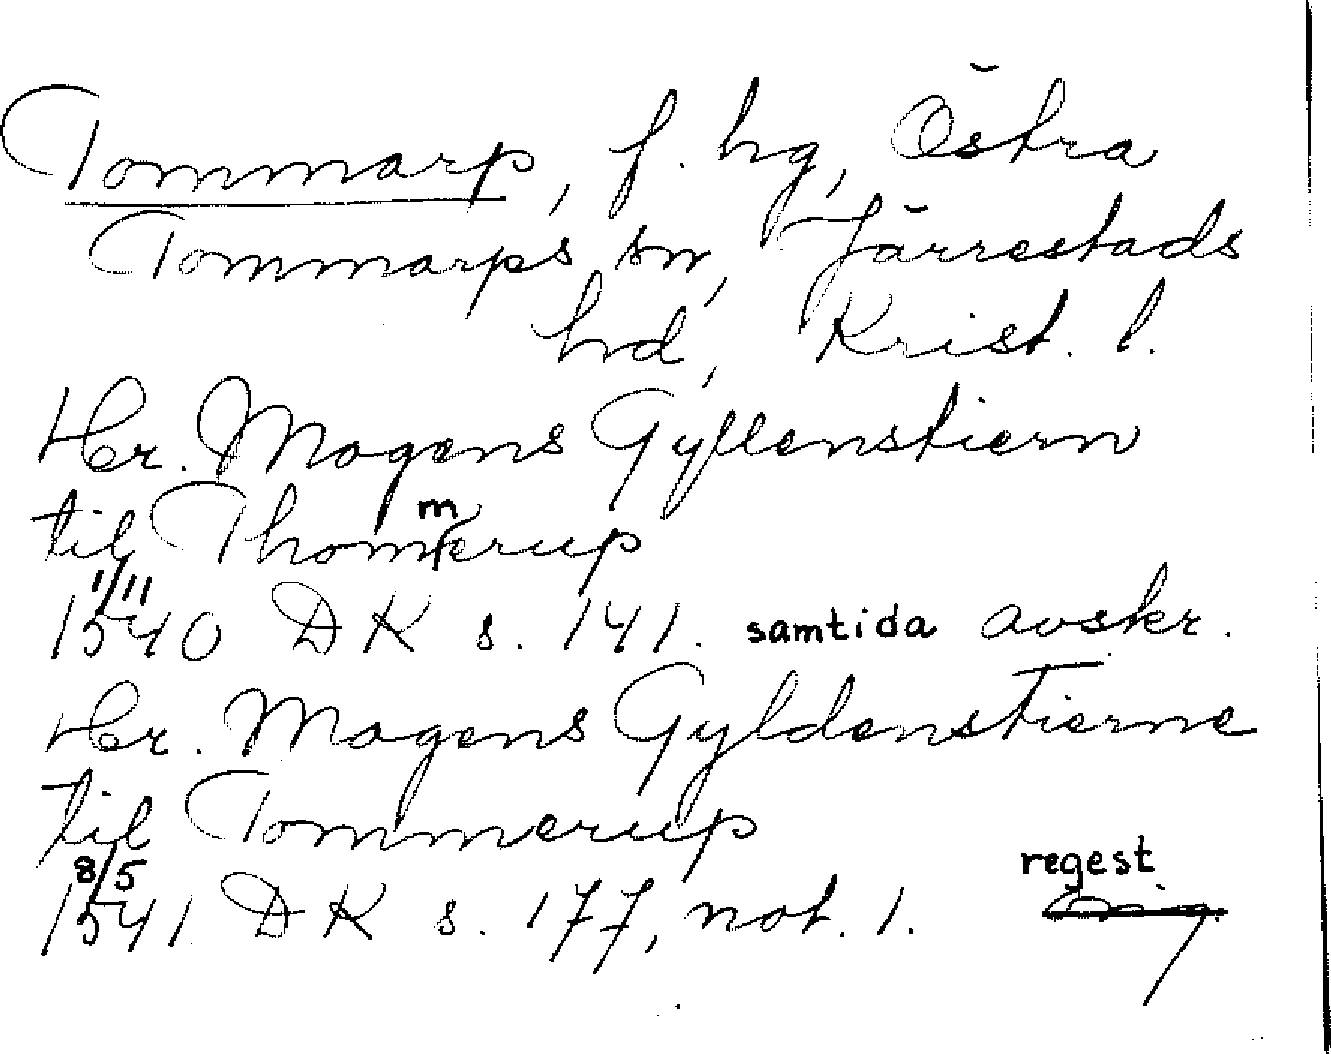 Tommarp, f. hg, Östra
Tommarps sn, Järrestads
hd, Krist. l.
Hr. Mogens Gyllenstiern
til Thommerup
1/11
1540 DK s. 141. samtida avskr.
Hr. Mogens Gyldenstierne
til Tommerup
8/5 regest
1541 DK s. 177, not. 1.